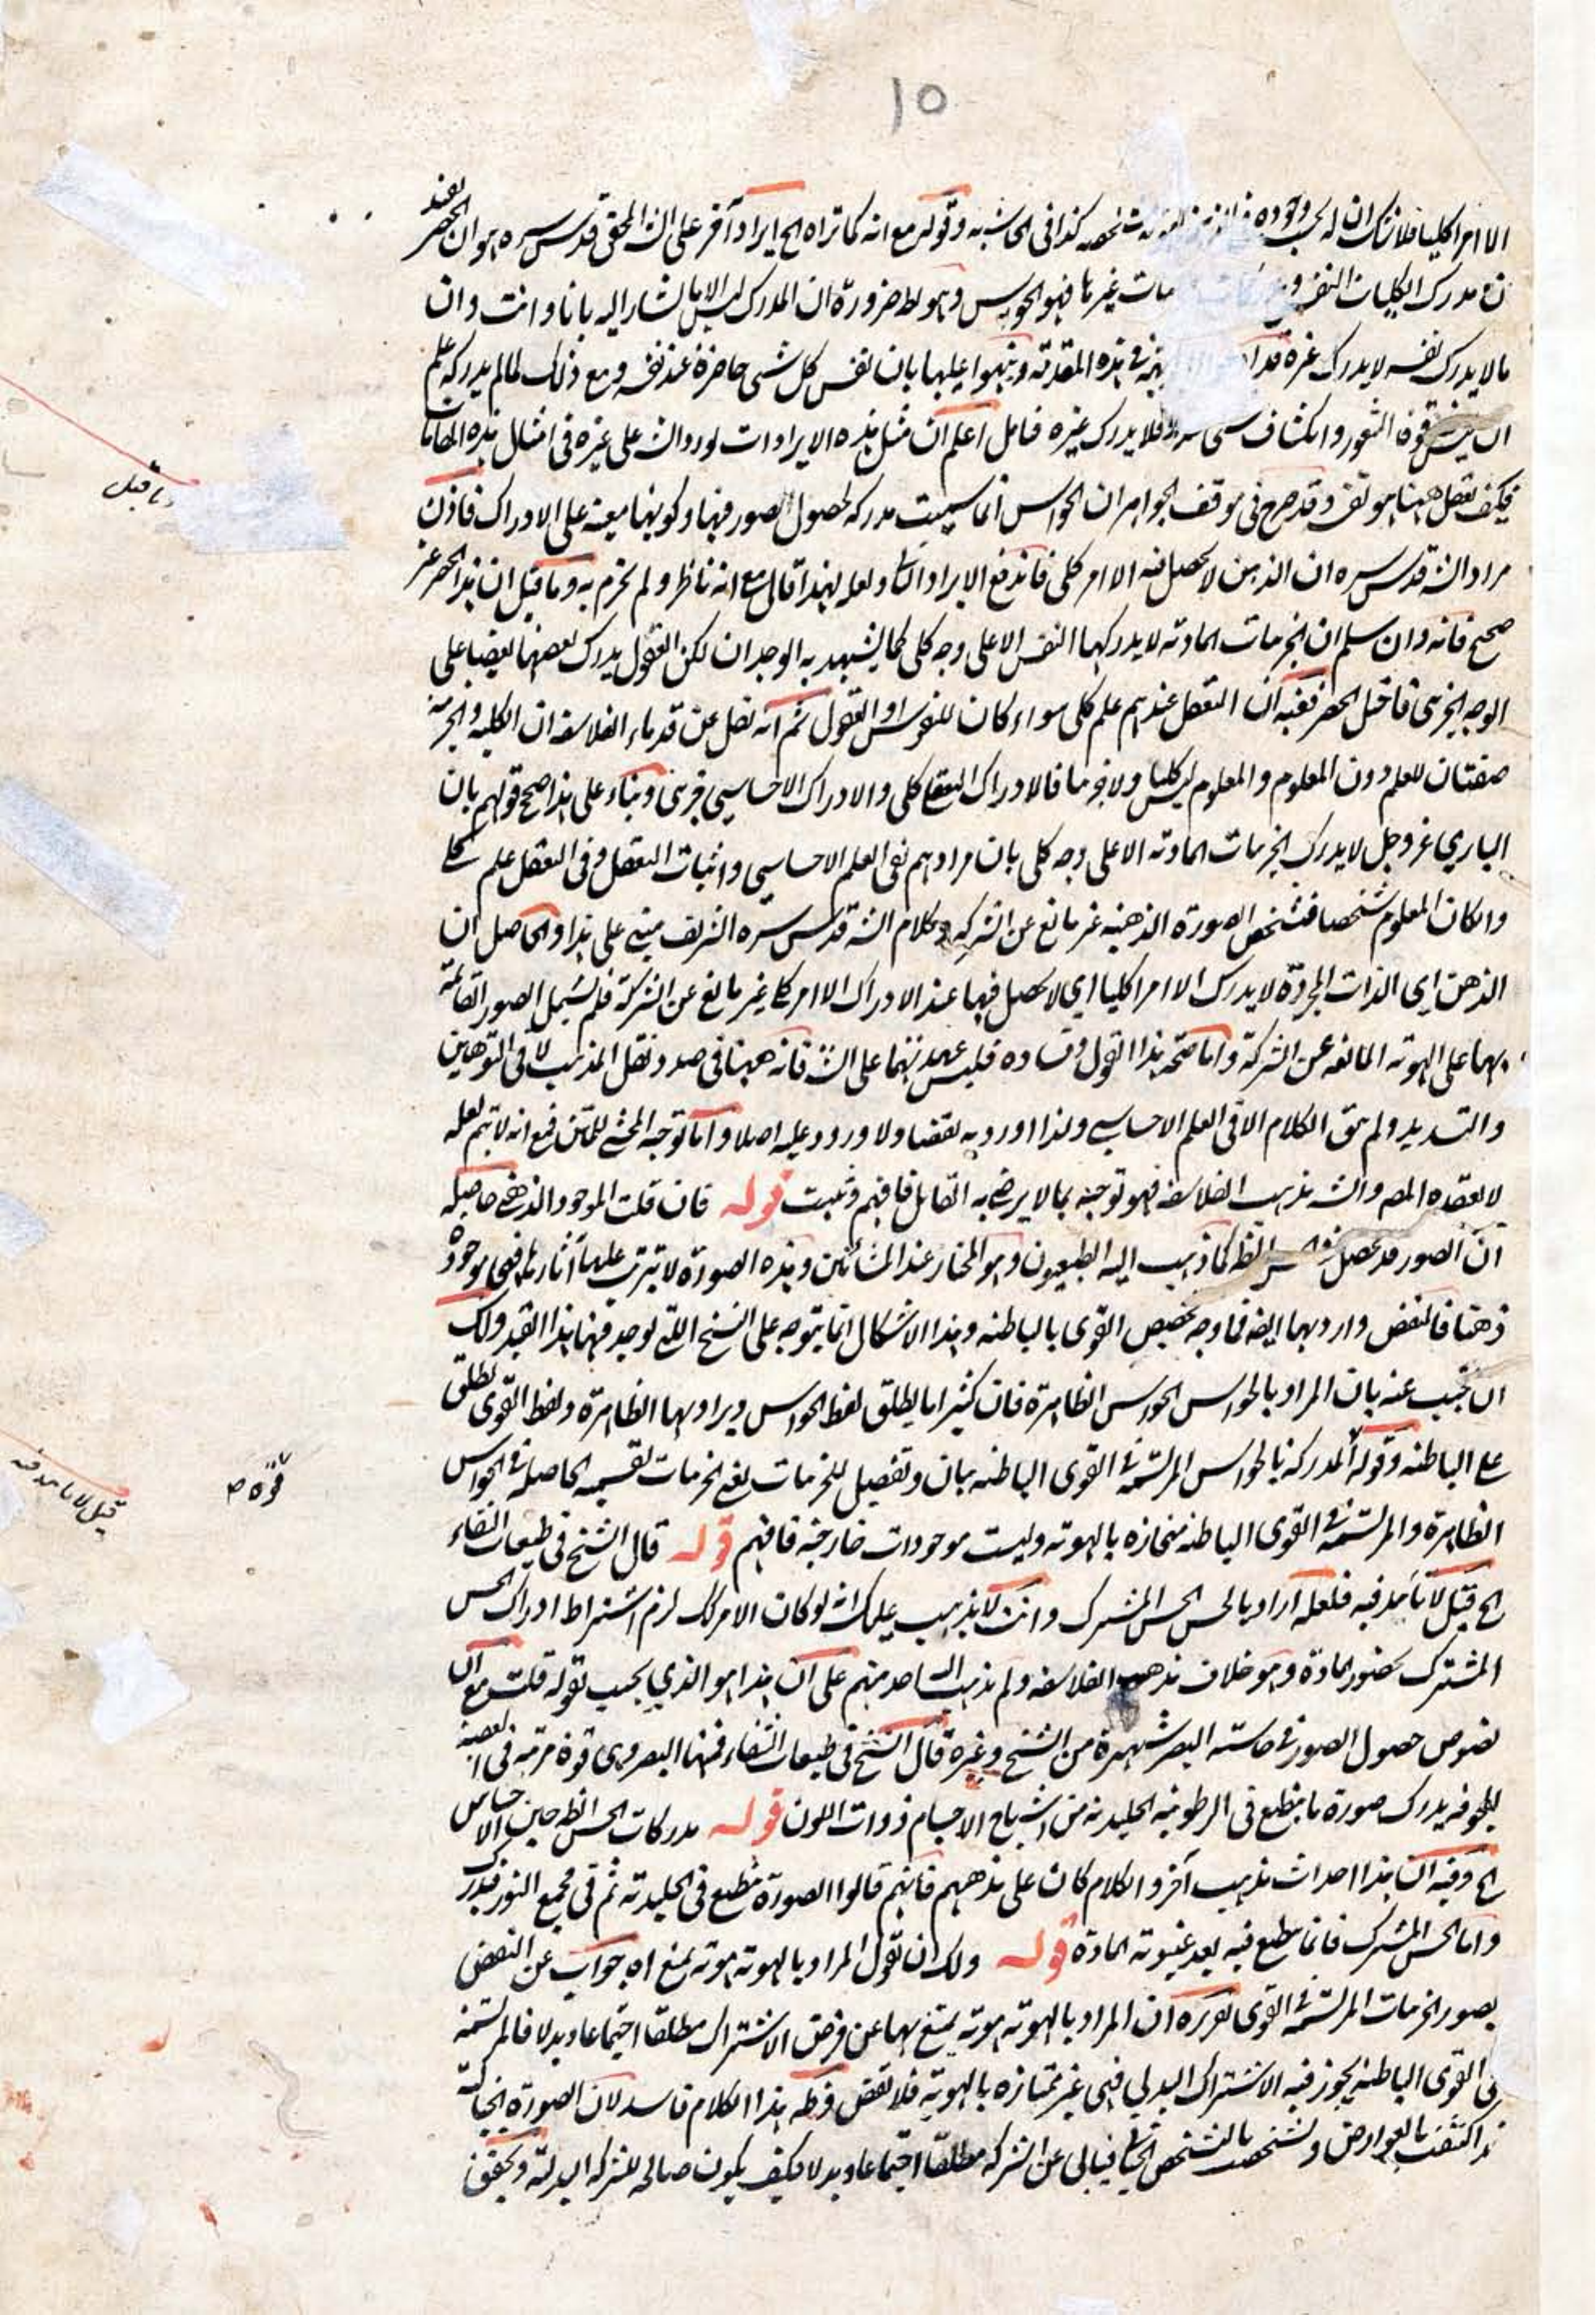 ١٥
الا امرا كليا فلا شك ان له كذا فى الحاشيه وقوله مع انه كما تراه الخ ايراد آخر على الش المحقق قدس سره هو ان الحصر
يفيد
ان مدرك الكليات النفس غيرها فهو الحواس وهو بط ضرورة ان المدرك ليس الا ما يشار اليه بانا وانت وان
ما لا يدرك نفسه لا يدرك غيره فى هذه المقدمة ونبهوا عليها بان نفس كل شىء حاضرة عند نفسه ومع ذلك لما لم يدركه علم
ان ليس قوة الشعور وانكشاف شىء فلا يدرك غيره فتامل اعلم ان مثل هذه الايرادات اوردوا الش على غيره فى امثال هذه المقامات
فكيف يغفل ههنا هو نفسه وقد صرح فى موقف الجواهر ان الحواس انما سميت مدركة لحصول الصور فيها وكونها معينة على الادراك فاذن
مراد الش قدس سره ان الذهن لا يحصل فيه الا امر كلى فاندفع الايراد ولعله لهذا قال مع انه ناظر ولم يجزم به وما قيل ان هذا الحصر غير
صحيح فانه وان سلم ان الجزئيات المادية لا يدركها النفس الا على وجه كلى كما يشهد به الوجدان لكن العقول يدرك بعضها بعضا على
الوجه الجزئى فاختل الحصر ففيه ان التعقل عندهم علم كلى سواء كان للنفوس او العقول ثم انه نقل عن قدماء الفلاسفة ان الكلية والجزئية
صفتان للعلم دون المعلوم والمعلوم ليس كليا ولا جزئيا فالادراك التعقلى كلى والادراك الاحساسى جزئى وبناء على هذا صح قولهم بان
البارى عز وجل لا يدرك الجزئيات المادية الا على وجه كلى بان مرادهم نفى العلم الاحساسى واثبات التعقل وفى التعقل علم كلى
وان كان المعلوم شخصا فتشخص الصورة الذهنية غير مانع عن الشركة وكلام الش قدس سره الشريف مبنى على هذا والحاصل ان
الذهن اى الذات المجردة لا يدرك الا امرا كليا اى لا يحصل فيها عند الادراك الا امر كلى غير مانع عن الشركة فلم يشمل الصور القائمة
بها على الهوية المانعة عن الشركة واما صحة هذا القول وفساده فليس عهدتهما على الش فانه ههنا فى صدد نقل المذهب لا فى التوهين
والتسديد ولم يبق الكلام الا فى العلم الاحساسى ولذا اورد به نقضا ولا ورود عليه اصلا واما توجيه المحشى للمتن فمع انه لا يتم لعله
لا يعقده المص والش مذهب الفلاسفة فهو توجيه بما لا يرضى به القائل فافهم وتثبت قوله فان قلت الموجود الذهنى حاصله
ان الصور قد تحصل فى الحواس الظ كما ذهب اليه الطبيعيون وهو المختار عند المشائين وهذه الصورة لا تترتب عليها آثارها فهى موجودة
ذهنا فالنقض وارد بها ايضا فما وجه تخصيص القوى بالباطنة وهذا الاشكال انما يتوجه على النسخ التى توجد فيها هذا القيد ولك
ان تجيب عنه بان المراد بالحواس الحواس الظاهرة فان كثيرا ما يطلق لفظ الحواس ويراد بها الظاهرة ولفظ القوى يطلق
على الباطنة وقوله المدركة بالحواس المرتسمة فى القوى الباطنة بيان وتفصيل للجزئيات يعنى الجزئيات لقسميه الحاصلة فى الحواس
الظاهرة والمرتسمة فى القوى الباطنة منحازة بالهوية وليست موجودات خارجية فافهم قوله قال الشيخ فى طبيعيات الشفاء
الخ قيل لا تأمد فيه فلعله اراد بالحس الحس المشترك وانت لا يذهب عليك انه لو كان الامر كك لزم اشتراط ادراك الحس
المشترك بحضور المادة وهو خلاف مذهب الفلاسفة ولم يذهب اليه احد منهم على ان هذا هو الذى يجيب بقوله قلت مع ان
نصوص حصول الصور فى حاسة البصر شهيرة من الشيخ وغيره قال الشيخ فى طبيعيات الشفاء فمنها البصر وهى قوة مرتبة فى العصبة
المجوفة يدرك صورة ما ينطبع فى الرطوبة الجليدية من اشباح الاجسام ذوات اللون قوله مدركات الحس الظ حين الاحساس
الخ وفيه ان هذا احداث مذهب آخر والكلام كان على مذهبهم فانهم قالوا الصورة تنطبع فى الجليدية ثم فى مجمع النور فيدرك
واما الحس المشترك فانما ينطبع فيه بعد غيبوبة المادة قوله ولك ان تقول المراد بالهوية هوية يمتنع اه جواب عن النقض
بصور الجزئيات المرتسمة فى القوى تقريره ان المراد بالهوية هوية يمتنع بها عن فرض الاشتراك مطلقا اجتماعا وبدلا فالمرتسمة
فى القوى الباطنة يجوز فيه الاشتراك البدلى فهى غير ممتازة بالهوية فلا نقض وظ هذا الكلام فاسد لان الصورة الخيالية
قد اكتنفت بالعوارض وتشخصت بالتشخص الخيالى فيابى عن الشركة مطلقا اجتماعا وبدلا فكيف يكون صالحة للشركة البدلية وتحقيق
وما قيل
قوة ص
قيل لا تأمد فيه